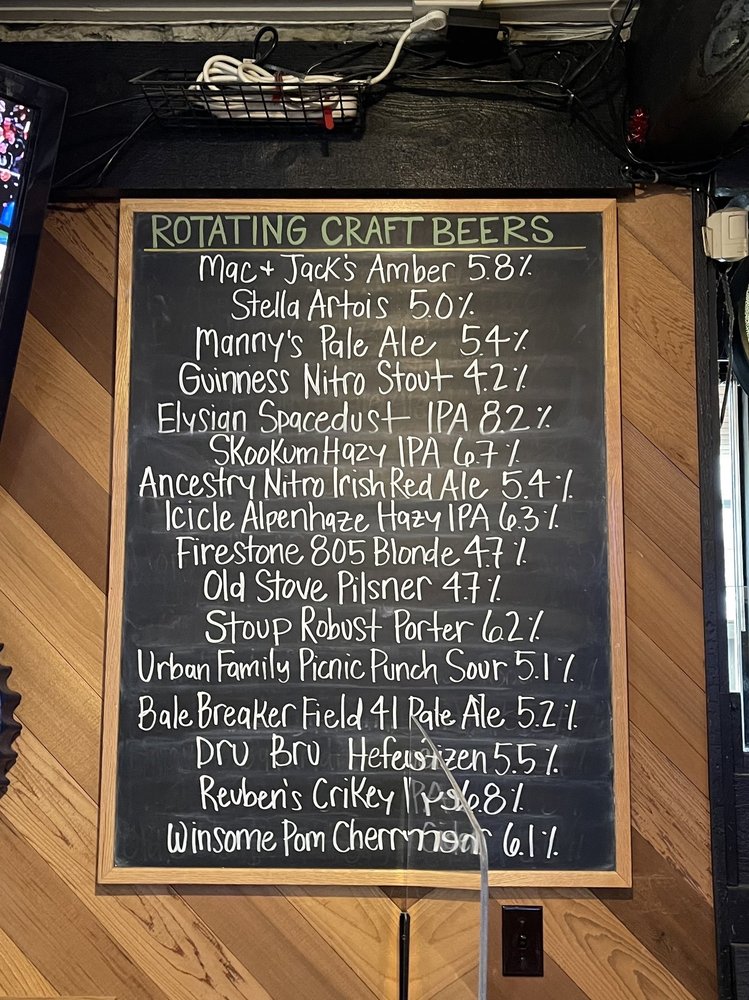 ROTATING CRAFT BEERS
Mac + Jack's Amber 5.8%
Stella Artois 5.0%
Manny's Pale Ale 5.4%
Guinness Nitro Stout 4.2%
Elysian Spacedust IPA 8.2%
Skookum Hazy IPA 6.7%
Ancestry Nitro Irish Red Ale 5.4%
Icicle Alpenhaze Hazy IPA 6.3%
Firestone 805 Blonde 4.7%
Old Stove Pilsner 4.7%
Stoup Robust Porter 6.2%
Urban Family Picnic Punch Sour 5.1%
Bale Breaker Field 41 Pale Ale 5.2%
Dru Bru Hefeweizen 5.5%
Reuben's Crikey IPA 6.8%
Winsome Pom Cherry 6.1%